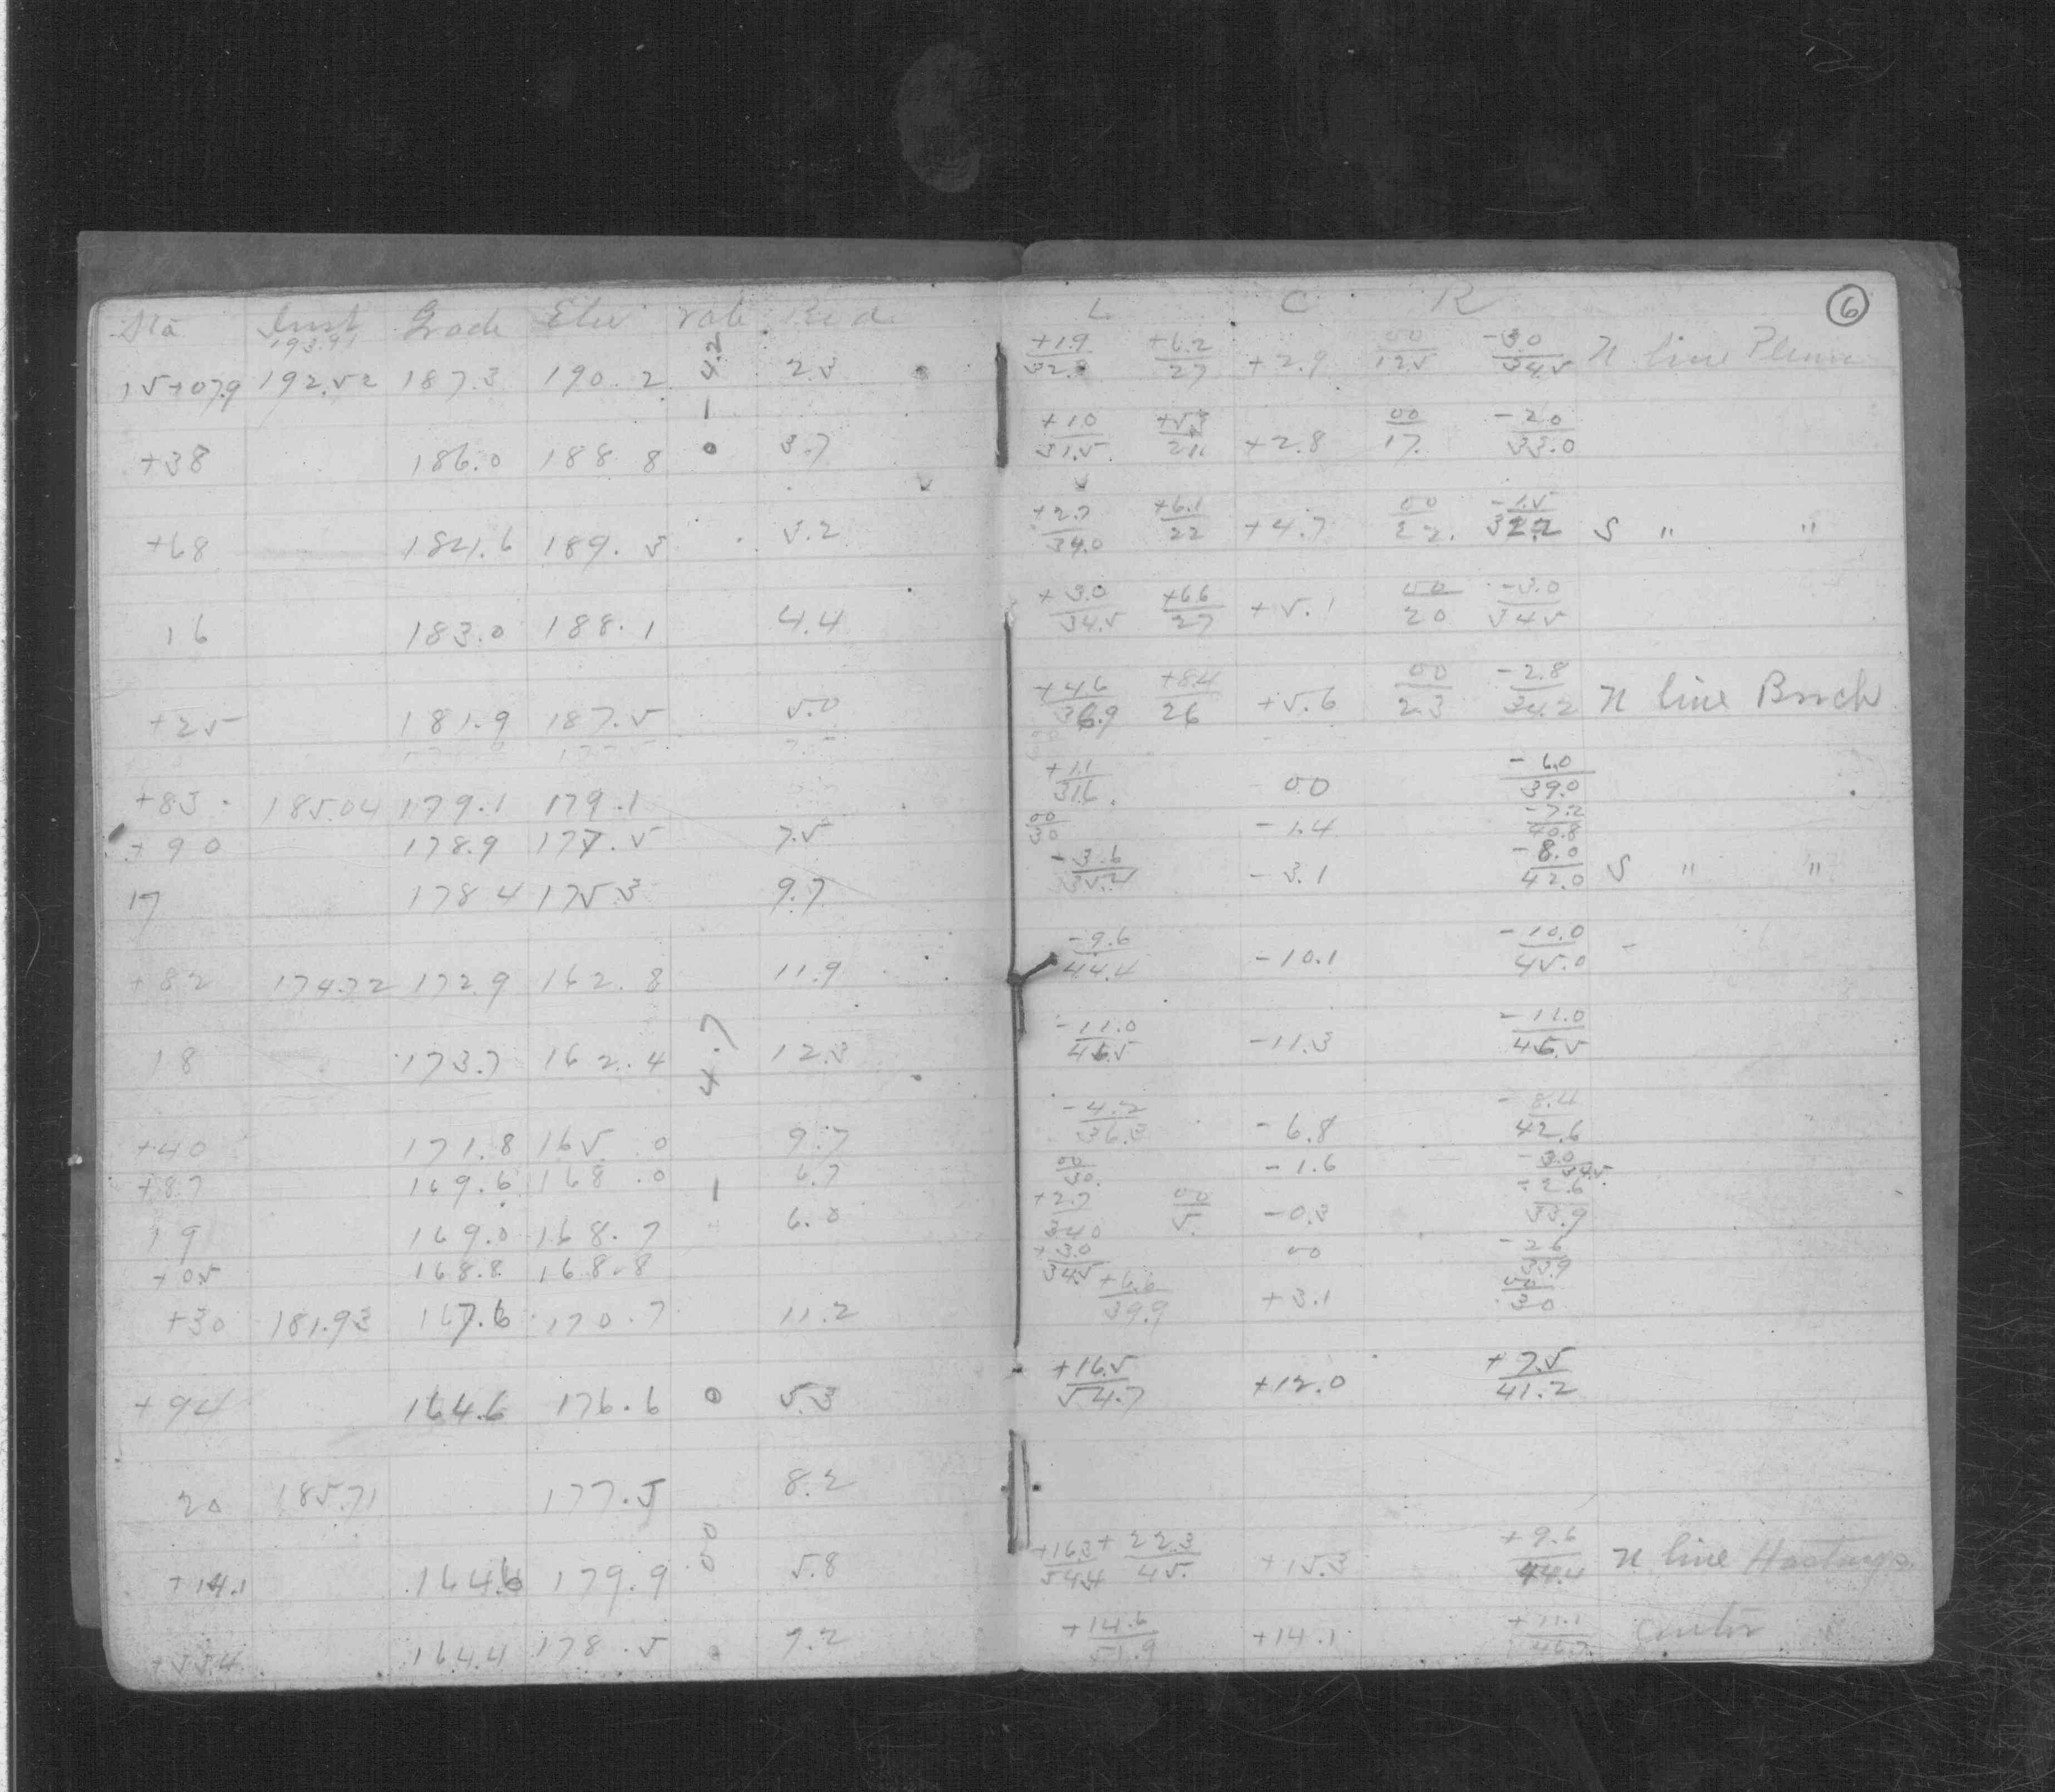 Sta Inst Grade Elev rate Rod L C R 6
193.91
15+07.9 192.52 187.3 190.2 2.3 +1.9/32.8 +6.2/27 +2.9 00/12.5 -3.0/34.5 N line
-4.2
+38 186.0 188.8 3.7 +1.0/31.5 +5.3/21. +2.8 00/17. -2.0/33.0
+68 184.6 189.3 3.2 +2.7/34.0 +6.1/22 +4.7 00/22. -1.5/32.2 S " "
16 183.0 188.1 4.4 +3.0/34.5 +6.6/27 +5.1 00/20 -3.0/34.5
+25 181.9 187.5 5.0 +4.6/36.9 +8.4/26 +5.6 00/23 -2.8/34.2 N line Birch
+83 185.04 179.1 179.1 +1.1/31.6 00 -6.0/39.0
+90 178.9 177.5 7.5 00/30 -1.4 -7.2/40.8
17 178.4 175.3 9.7 -3.6/35.4 -3.1 -8.0/42.0 S " "
+82 174.72 172.9 162.8 11.9 -9.6/44.4 -10.1 -10.0/45.0
18 173.7 162.4 12.3 -11.0/46.5 -11.3 -11.0/46.5
-4.7
+40 171.8 165.0 9.7 -4.2/36.3 -6.8 -8.4/42.6
+87 169.6 168.0 6.7 00/30. -1.6 -3.0/34.5
19 169.0 168.7 6.0 +2.7/34.0 00/5. -0.3 -2.6/33.9
+05 168.8 168.8 +3.0/34.5 00 -2.6/33.9
+30 181.93 167.6 170.7 11.2 +6.6/39.9 +3.1 00/30
+94 164.6 176.6 0 5.3 +16.5/54.7 +12.0 +7.5/41.2
20 185.71 177.5 8.2
+14.1 164.6 179.9 00 5.8 +16.3/54.4 +22.3/45. +15.3 +9.6/44.4 N line Hastings
+55.4 164.4 178.5 7.2 +14.6/51.9 +14.1 +11.1/46.7 Center "